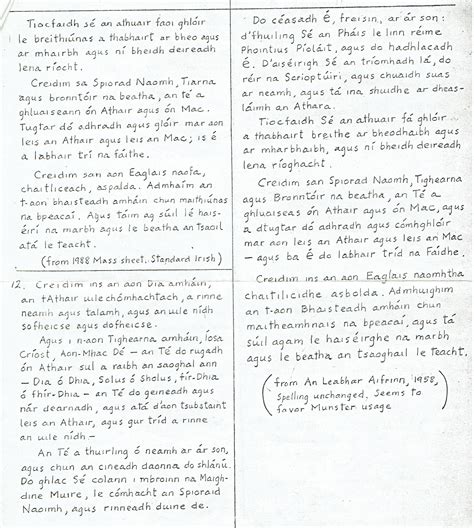 Tiocfaidh sé an athuair faoi ghlóir
le breithiúnas a thabhairt ar bheo agus
ar mhairbh agus ní bheidh deireadh
lena ríocht.
Creidim sa Spiorad Naomh, Tiarna
agus bronntóir na beatha, an té a
ghluaiseann ón Athair agus ón Mac.
Tugtar dó adhradh agus glóir mar aon
leis an Athair agus leis an Mac; is é
a labhair trí na fáithe.
Creidim san aon Eaglais naofa,
chaitliceach, aspalda. Admhaím an
t-aon bhaisteadh amháin chun maithiúnas
na bpeacaí. Agus táim ag súil le hais-
éirí na marbh agus le beatha an tsaoil
atá le teacht.
(from 1988 Mass sheet. Standard Irish)
12. Creidim ins an aon Dia amháin,
an tAthair uile chómhachtach, a rinne
neamh agus talamh, agus an uile nídh
sofheicse agus dofheicse.
Agus i n-aon Tighearna amháin, Íosa
Críost, Aon-Mhac Dé — an Té do rugadh
ón Athair sul a raibh an saoghal ann
— Dia ó Dhia, Solus ó Sholus, fír-Dhia
ó fhír-Dhia — an Té do geineadh agus
nár dearnadh, agus atá d'aon tsubstaint
leis an Athair, agus gur tríd a rinne
an uile nídh —
An Té a thuirling ó neamh ar ár son,
agus chun an cineadh daonna do shlánú.
Do ghlac Sé colann i mbroinn na Maigh-
dine Muire, le cómhacht an Spioraid
Naoimh, agus rinneadh duine de.
Do céasadh É, freisin, ar ár son:
d'fhuiling Sé an Pháis le linn réime
Phointius Píoláit, agus do hadhlacadh
É. D'aiséirigh Sé an tríomhadh lá, do
réir na Scrioptúirí, agus chuaidh suas
ar neamh, agus tá ina shuidhe ar dheas-
láimh an Athara.
Tiocfaidh Sé an athuair fá ghlóir
a thabhairt breithe ar bheodhaibh agus
ar mharbhaibh, agus ní bheidh deireadh
lena ríoghacht.
Creidim san Spiorad Naomh, Tighearna
agus Bronntóir na beatha, an Té a
ghluaiseas ón Athair agus ón Mac, agus
a dtugtar dó adhradh agus cómhghlóir
mar aon leis an Athair agus leis an Mac
— agus ba É do labhair tríd na Fáidhe.
Creidim ins an aon Eaglais naomhtha
chaitilicidhe asbolda. Admhuighim
an t-aon Bhaisteadh amháin chun
maitheamhnais na bpeacaí, agus tá
súil agam le haiséirghe na marbh
agus le beatha an tsaoghail le teacht.
(from An Leabhar Aifrinn, 1958,
spelling unchanged. Seems to
favor Munster usage)